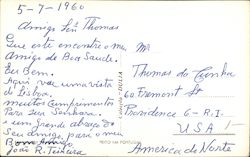 5-7-1960
Amigo Senr Thomas
Que este encontre o meu
Amigo de Boa Saude.
Eu Bem.
Aqui vae uma vista
de Lisboa.
muitos Cumprimentos
Para Seu Senhora.
e um Grande abraço do
Seu amigo, para o meu
Bom Amigo
João R. Teixeira
Colecção DÚLIA
Mr
Thomas da Cunha
60 Fremont St
Providence 6 - R.I.
USA
America do Norte